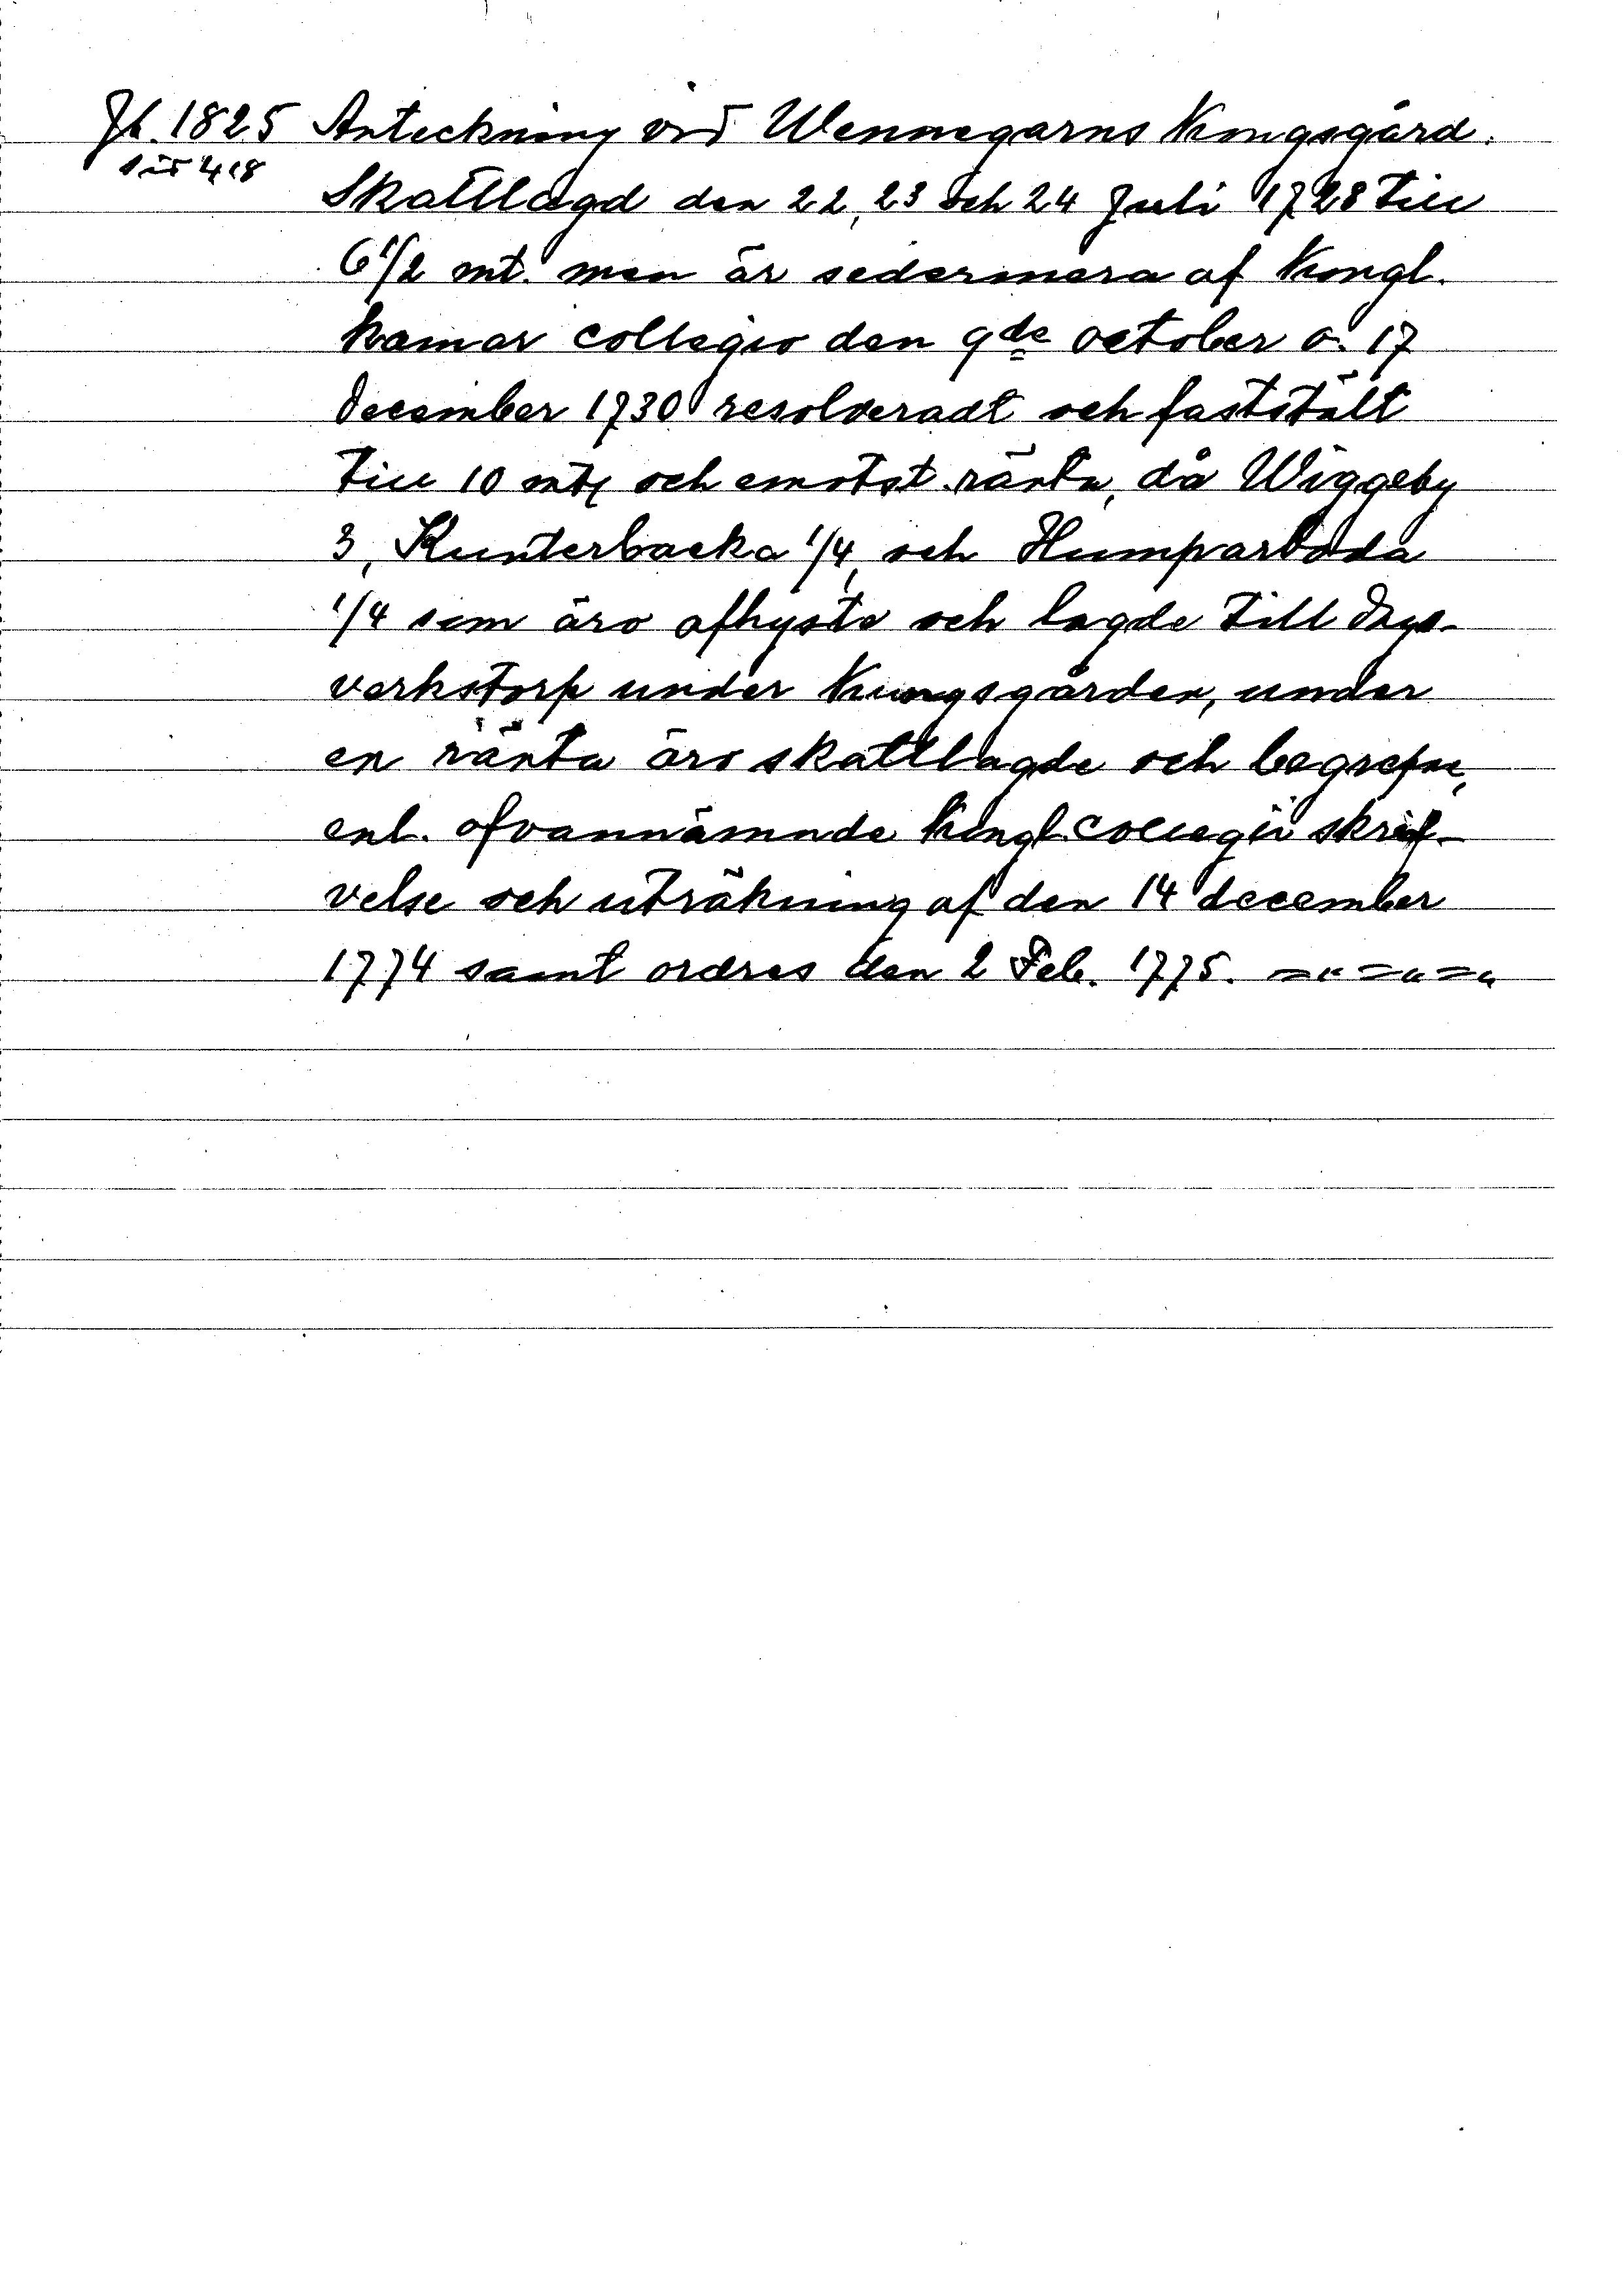 Jb. 1825 Anteckning vid Wennegarns Kungsgård.
sid 418
Skattlagd den 22, 23 och 24 Juli 1728 till
6 1/2 mt. men är sedermera af Kongl.
Kamar collegio den 9de october o. 17
december 1730 resolveradt och faststält
till 10 mtl och emotst. ränta, då Wiggeby
3, Kunterbacka 1/4, och Humparboda
1/4 som äro afhyste och lagde till dags-
verkstorp under Kungsgården, under
en ränta äro skattlagde och begrepne,
enl. ofvannämnde Kongl. Collegii skrif-
velse och uträkning af den 14 december
1774 samt ordres den 2 Feb. 1775. ="="="